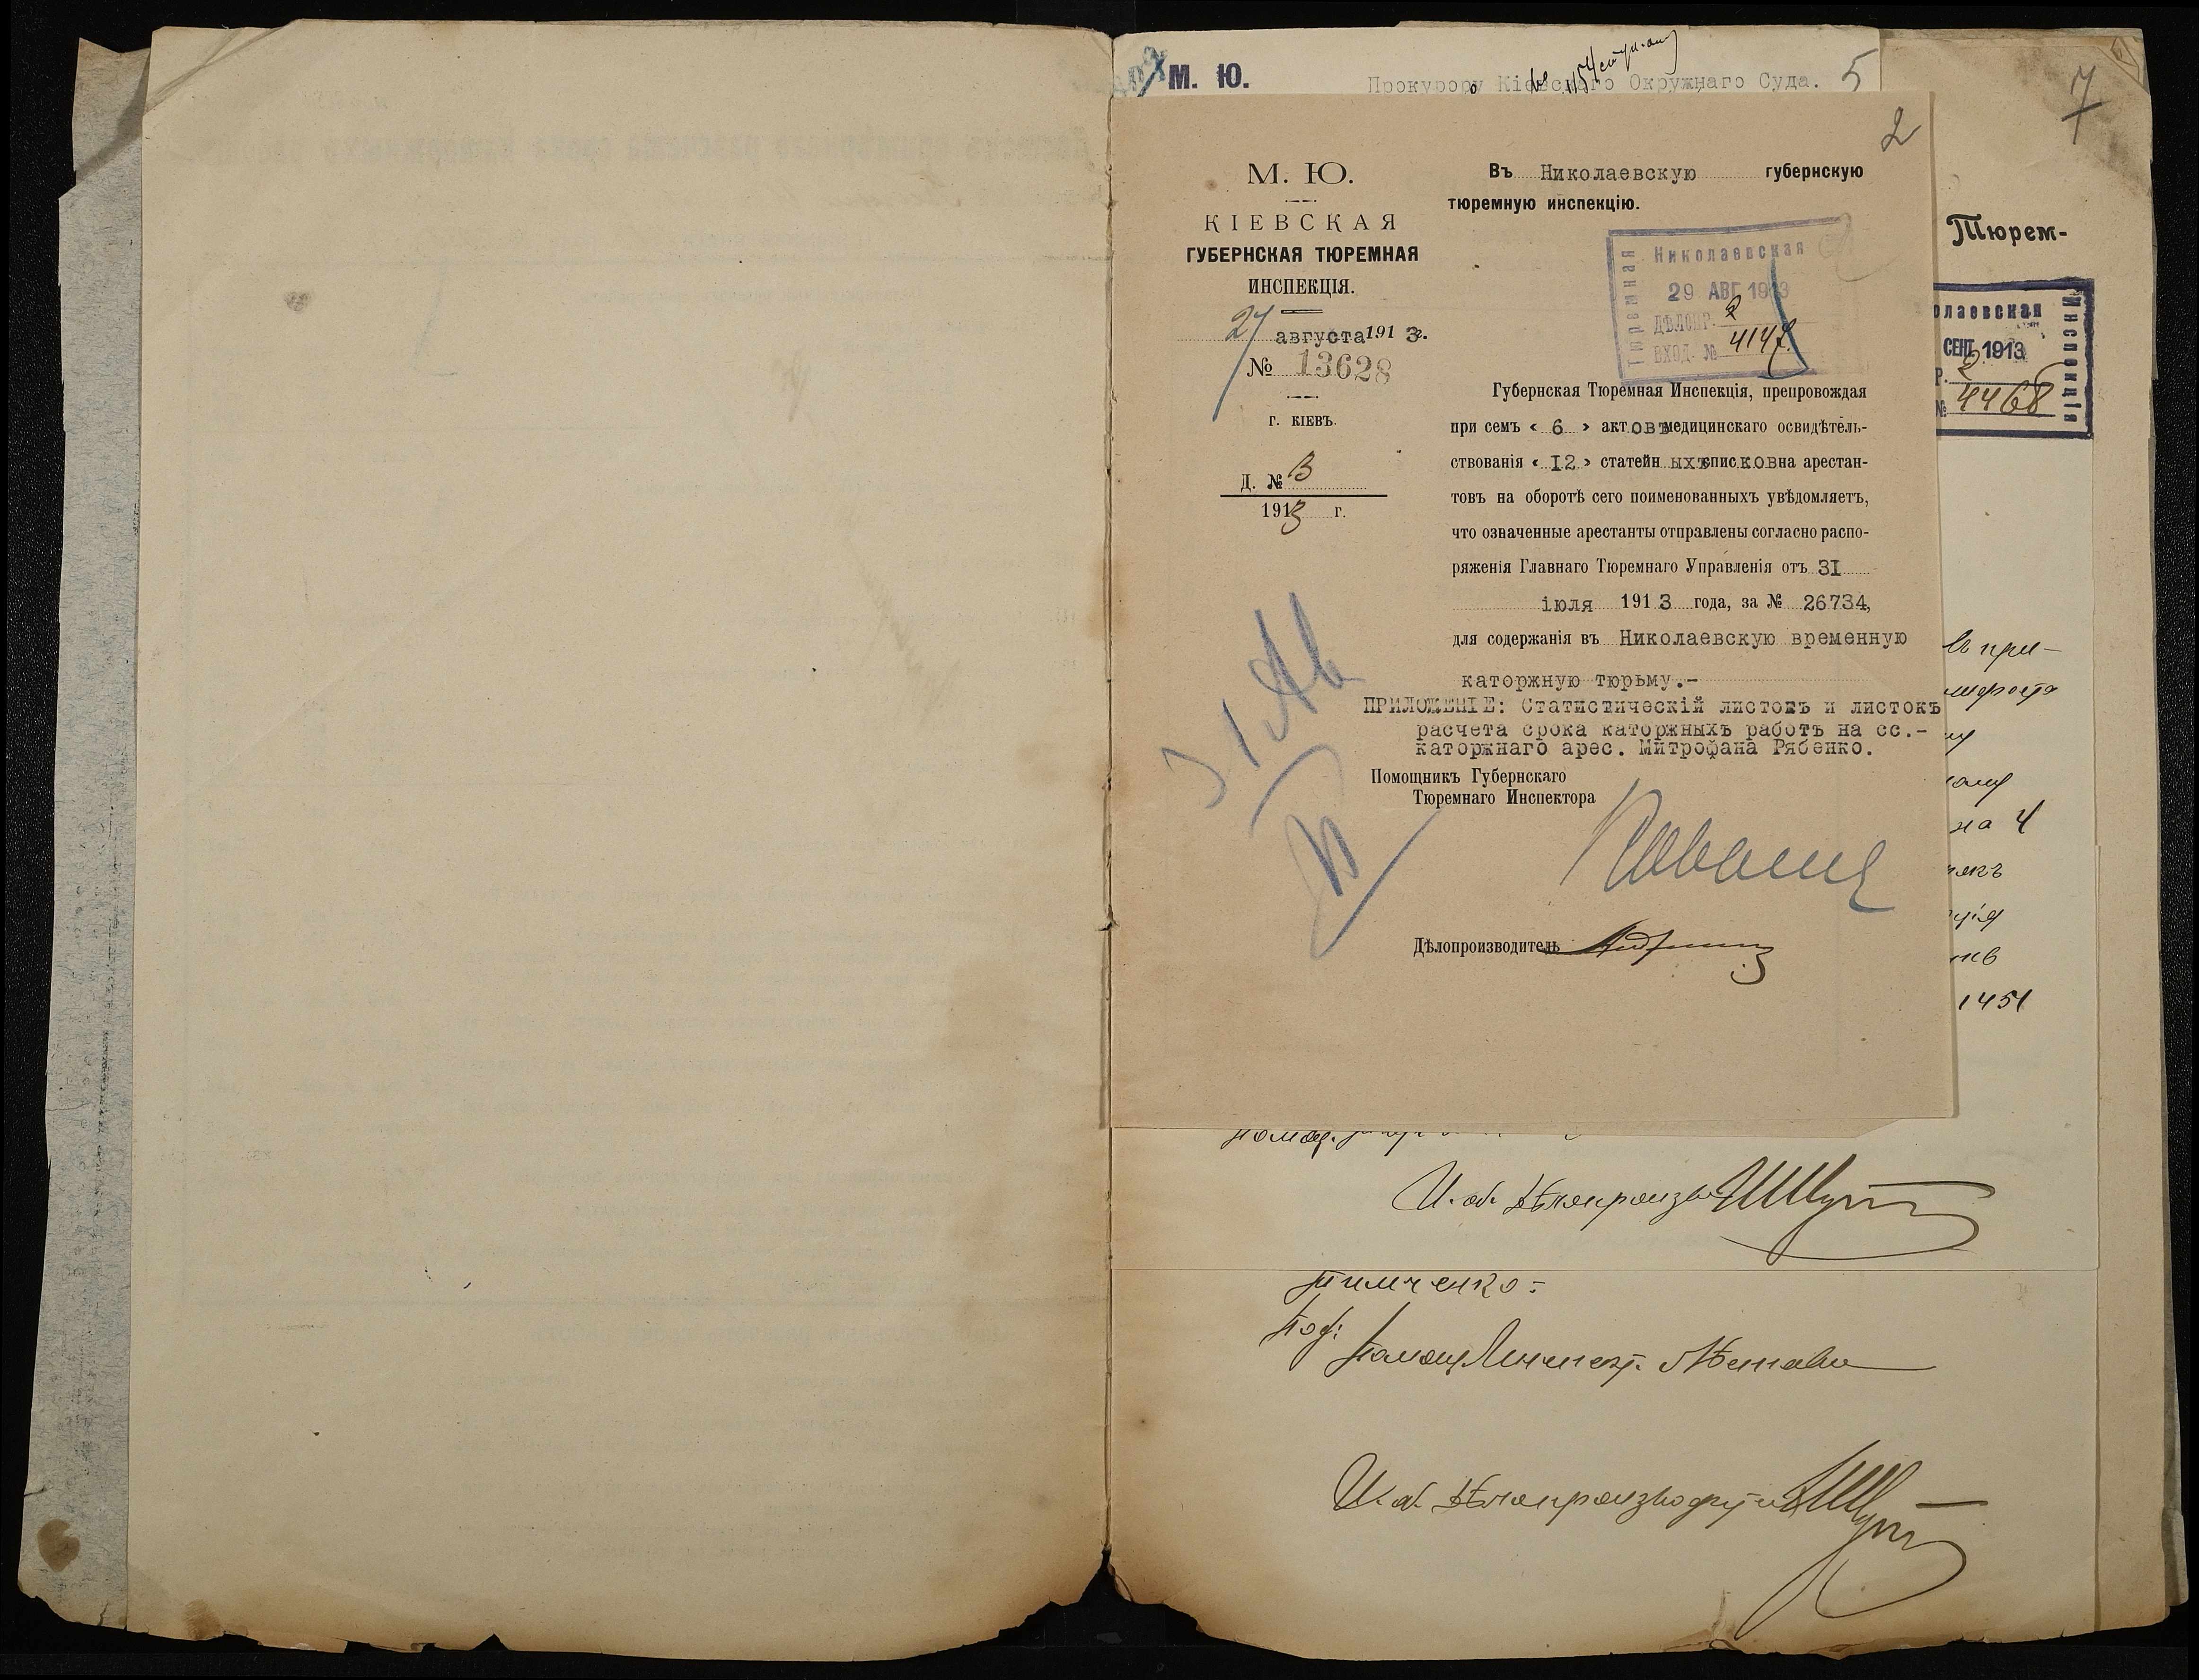 М. Ю.
Прокурору Кіевскаго Окружнаго Суда.
5
7
2
М. Ю.
КІЕВСКАЯ
ГУБЕРНСКАЯ ТЮРЕМНАЯ
ИНСПЕКЦІЯ.
27 августа 1913 г.
№ 13628
г. КІЕВЪ.
Д. № 3
1913 г.
Въ Николаевскую губернскую
тюремную инспекцію.
Николаевская
Тюремная
29 АВГ 1913
ДѢЛОПР. 2
ВХОД. № 4147
Губернская Тюремная Инспекція, препровождая
при семъ « 6 » актовъ медицинскаго освидѣтель-
ствованія « I2 » статейныхъ списковъ на арестан-
товъ на оборотѣ сего поименованныхъ увѣдомляетъ,
что означенные арестанты отправлены согласно распо-
ряженія Главнаго Тюремнаго Управленія отъ 3I
іюля 1913 года, за № 26734,
для содержанія въ Николаевскую временную
каторжную тюрьму.-
ПРИЛОЖЕНІЕ: Статистическій листокъ и листокъ
расчета срока каторжныхъ работъ на сс.-
каторжнаго арес. Митрофана Рябенко.
Помощникъ Губернскаго
Тюремнаго Инспектора
Дѣлопроизводитель
Тюрем-
олаевская
Инспекція
СЕНТ 1913
Р. 2
№ 4468
на 4
1451
И. об. Дѣлопроизв.
Под:
И. об. Дѣлопроизводителя